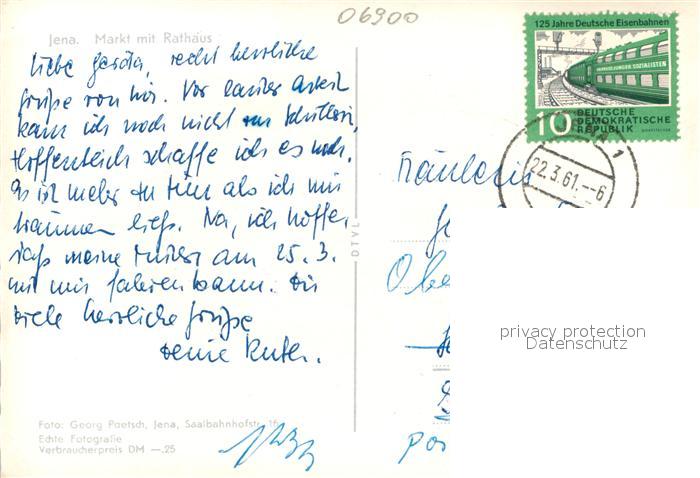 06900
Jena. Markt mit Rathaus
Liebe Gerda, recht herzliche
Grüße von mir. Vor lauter Arbeit
kann ich noch nicht
Hoffentlich schaffe ich es noch.
Es ist mehr zu tun als ich mir
träumen ließ. Na, ich hoffe,
daß meine Mutter am 25.3.
mit mir fahren kann. Dir
viele herzliche Grüße
Deine
Foto: Georg Paetsch, Jena, Saalbahnhofstr. 16
Echte Fotografie
Verbraucherpreis DM —.25
DTVL
125 Jahre Deutsche Eisenbahnen
10 DEUTSCHE
DEMOKRATISCHE
REPUBLIK
22.3.61.--6
1
Fräulein
Obe
privacy protection
Datenschutz